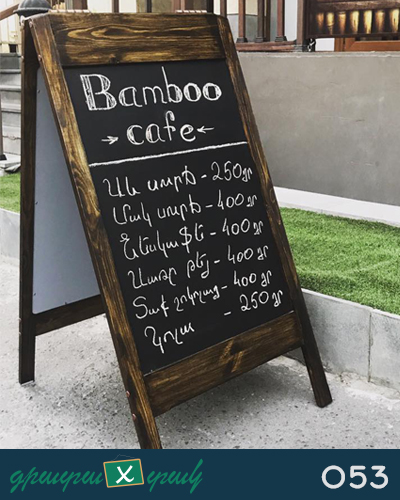 Bamboo
cafe
Սև սուրճ - 250 դր
Մակ սուրճ - 400 դր
Նեսկաֆե - 400 դր
Սառը թեյ - 400 դր
Տաք շոկոլադ - 400 դր
Կոլա - 250 դր
գրատախտակ
053